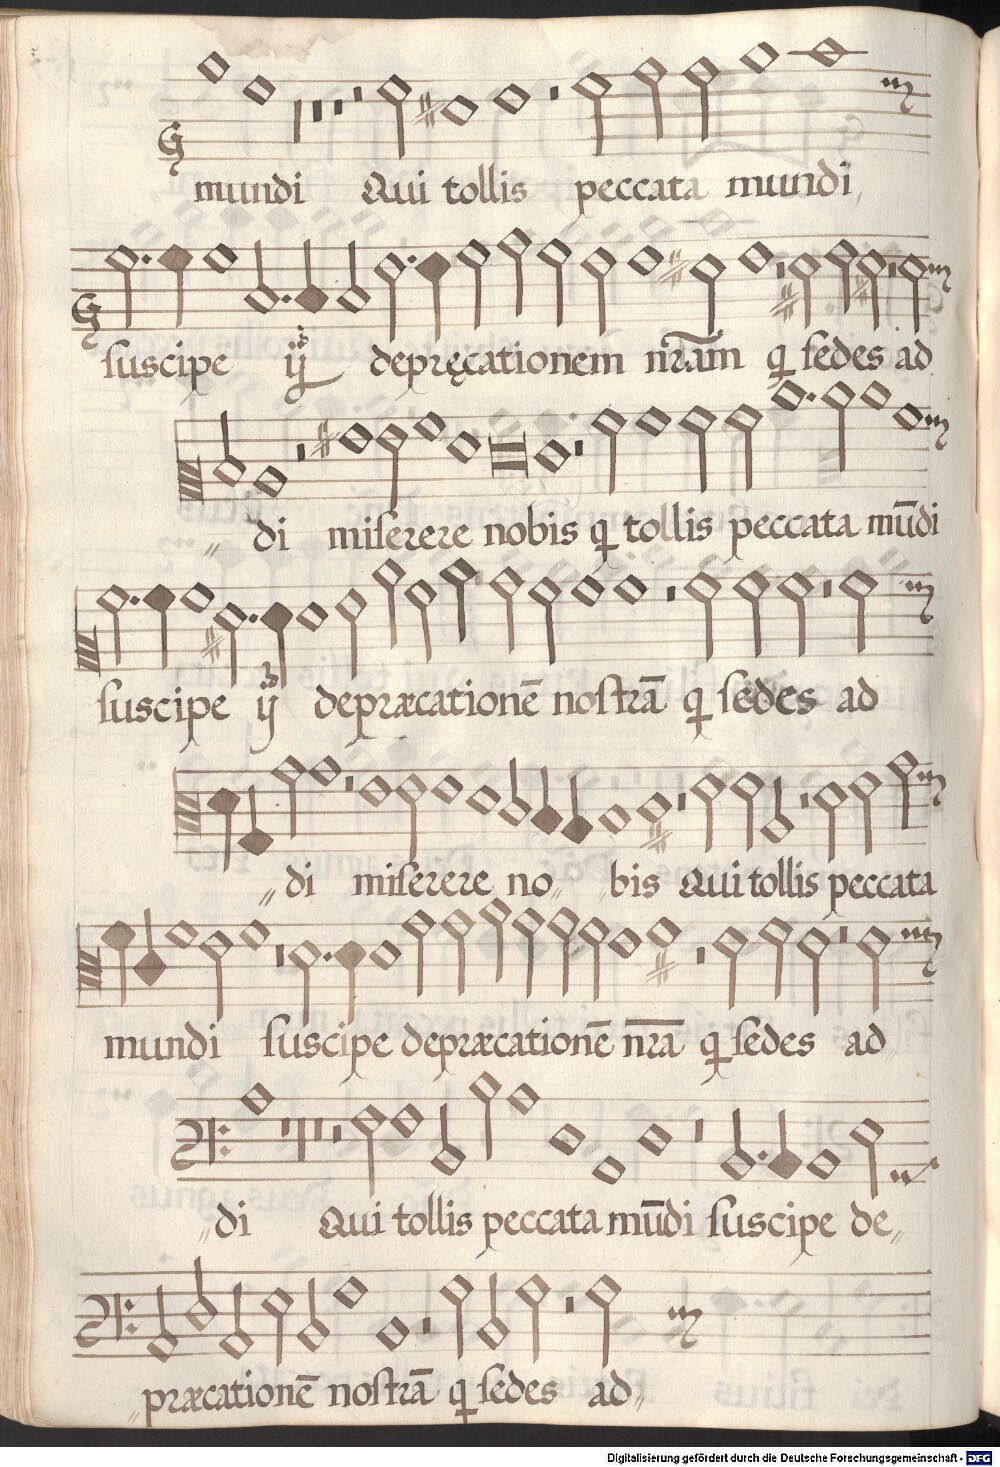 mundi Qui tollis peccata mundi,
suscipe ij depręcationem nr̄am q sedes ad
„ di miserere nobis q tollis peccata mūdi
suscipe ij depræcationē nostrā q sedes ad
„ di miserere no„ bis Qui tollis peccata
mundi suscipe depræcationē nr̄ā q sedes ad
„ di Qui tollis peccata mūdi suscipe de„
„ præcationē nostrā q sedes ad„
Digitalisierung gefördert durch die Deutsche Forschungsgemeinschaft - DFG